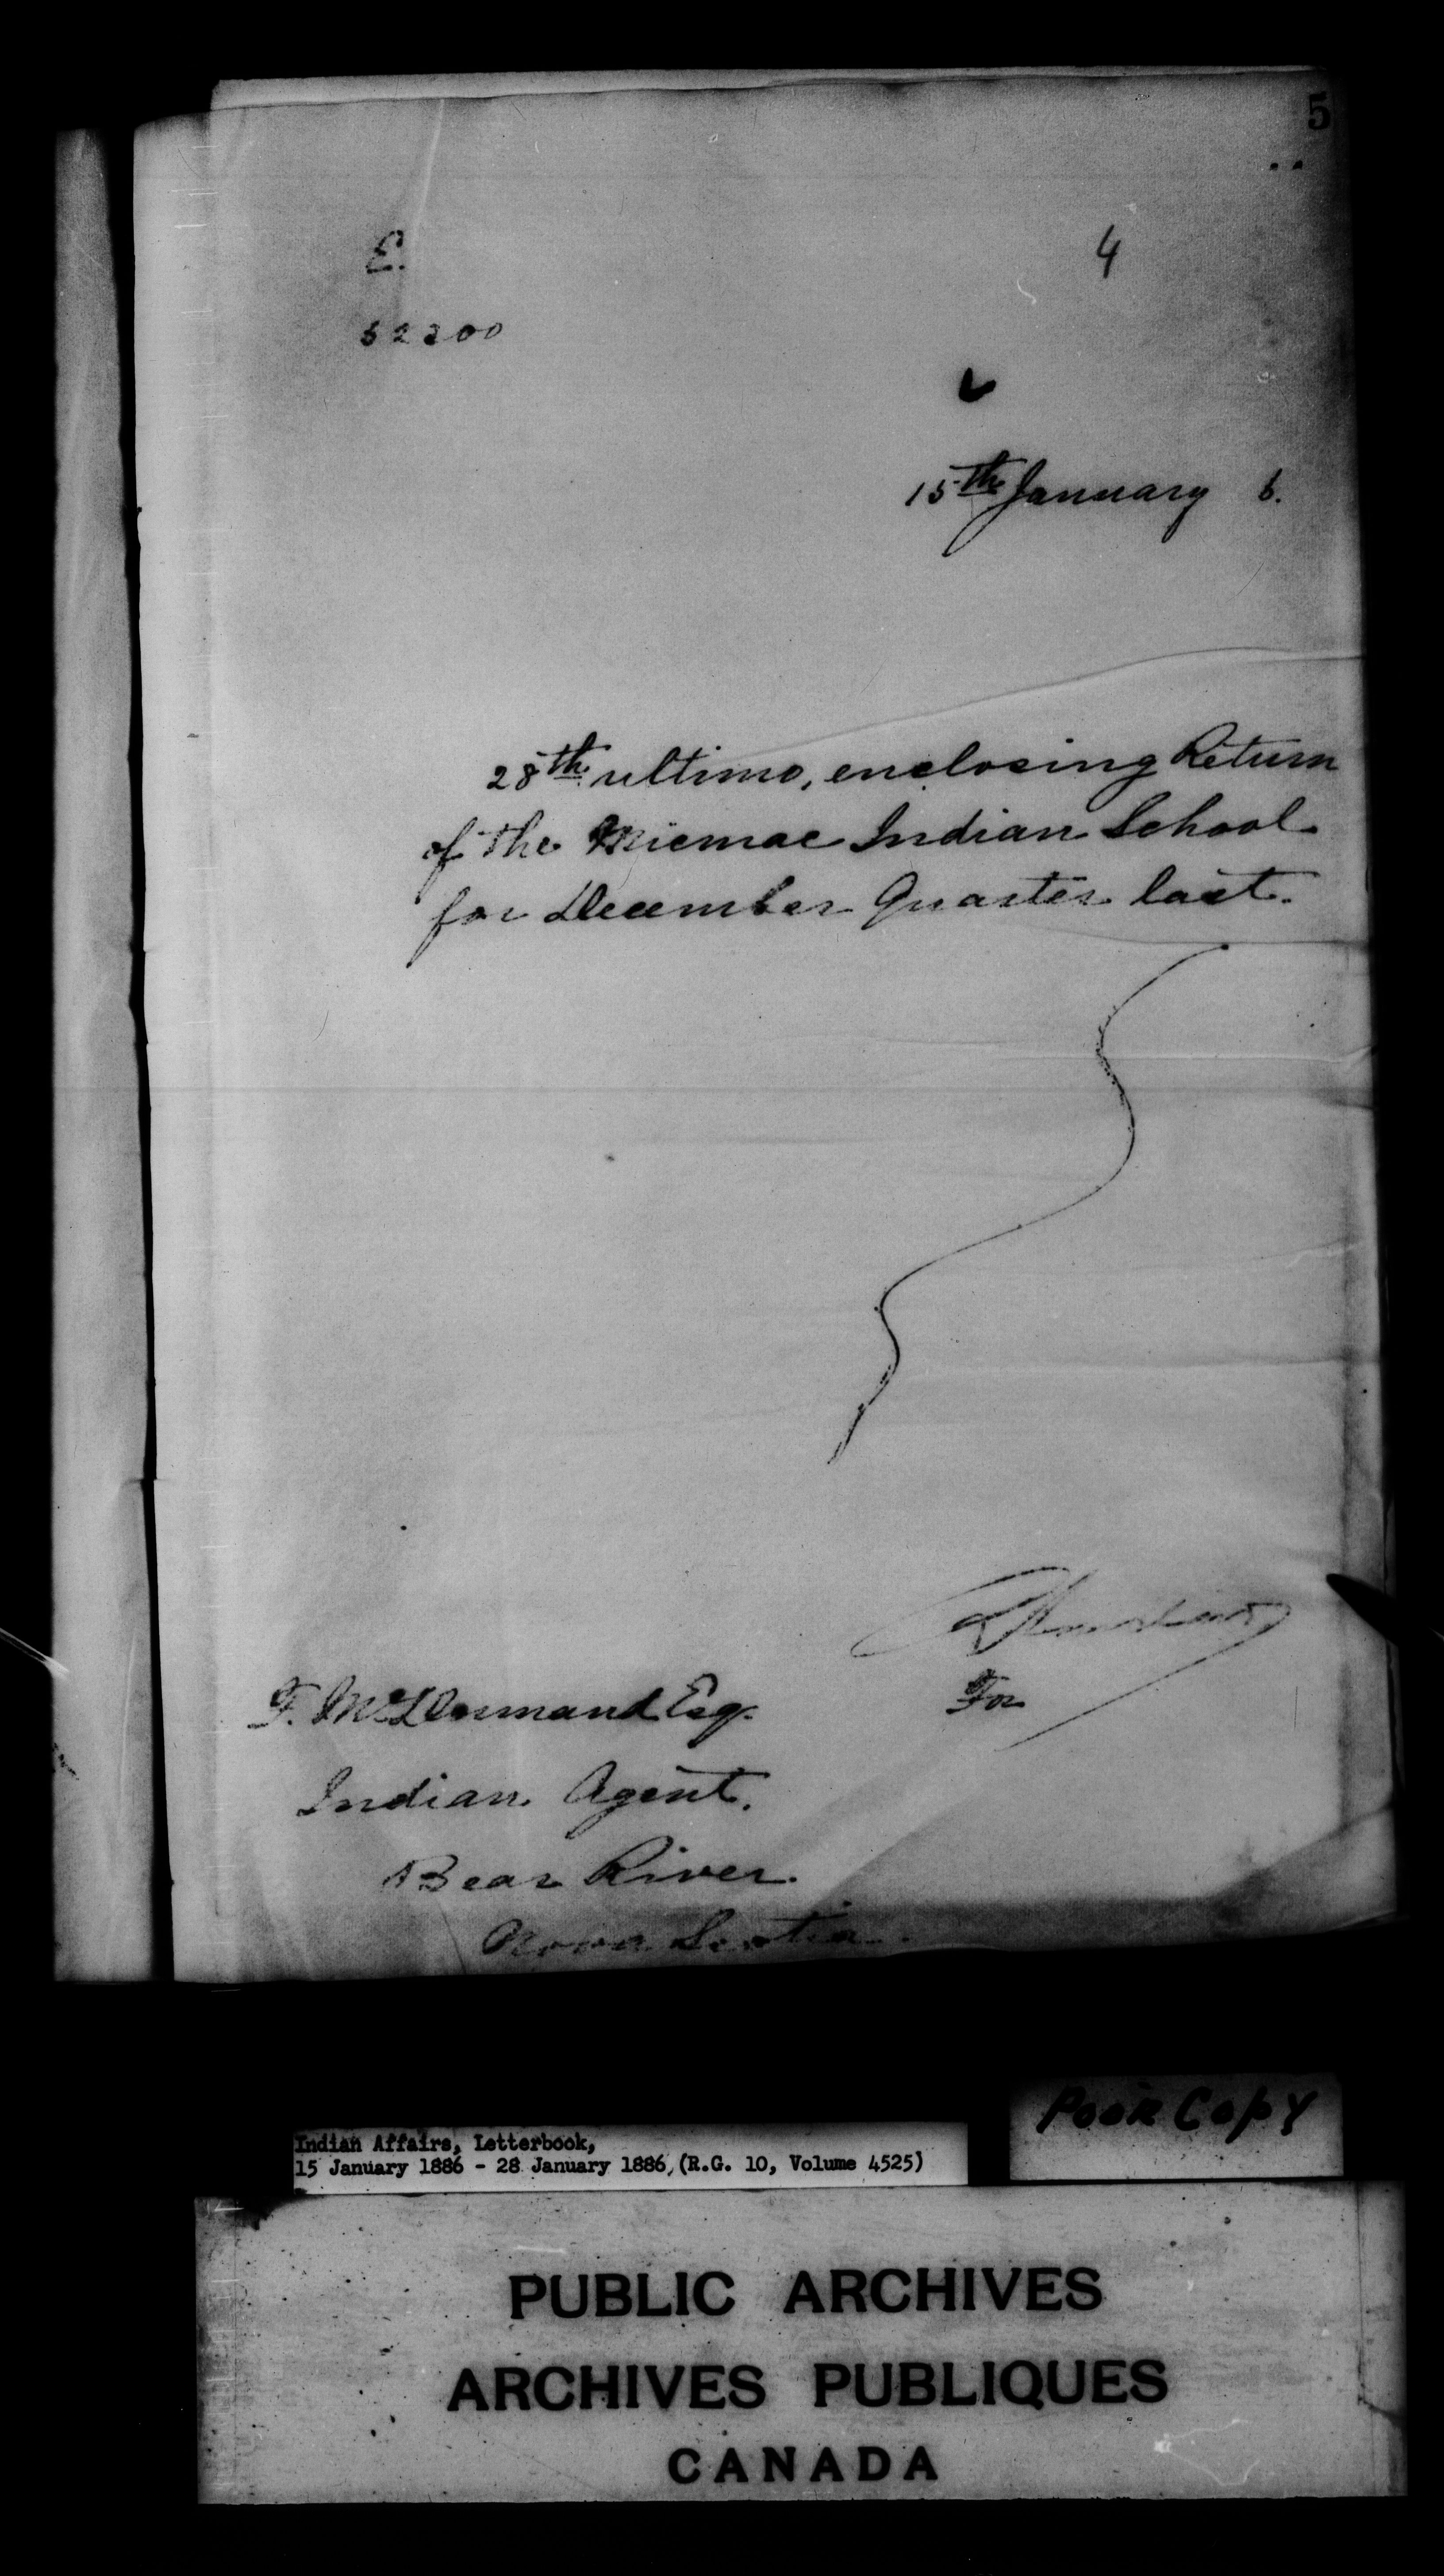 5
E.
4
52200
15th January 6.
28th ultimo, enclosing Return
of the Micmac Indian School
for December Quarter last.
For
F. McDormand Esq.
Indian Agent.
Bear River.
Nova Scotia.
Poor Copy
Indian Affairs, Letterbook,
15 January 1886 - 28 January 1886, (R.G. 10, Volume 4525)
PUBLIC ARCHIVES
ARCHIVES PUBLIQUES
CANADA